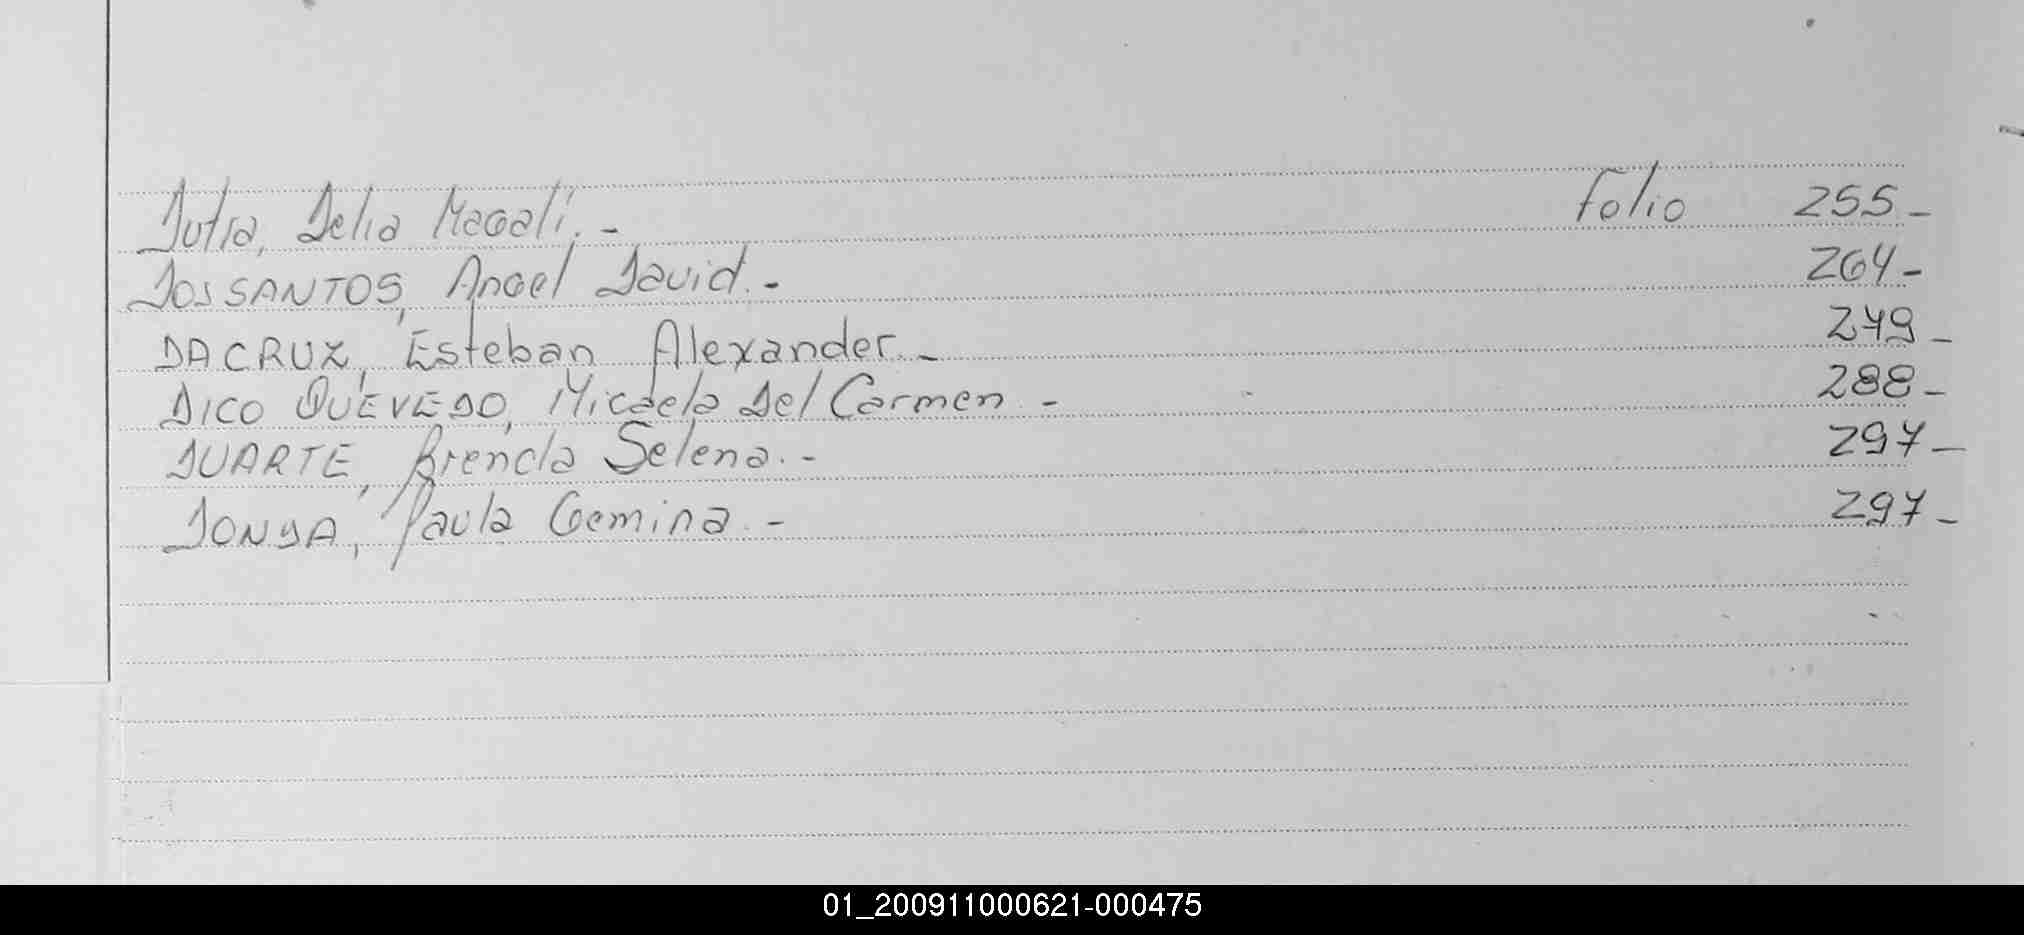 Dutra, Delia Magali.- Folio 255-
DOS SANTOS, Angel David.- 264-
DA CRUZ, Esteban Alexander.- 279-
DICO QUEVEDO, Micaela Del Carmen.- 288-
DUARTE, Brenda Selena.- 297-
Paula Gemina.- 297-
01_200911000621-000475